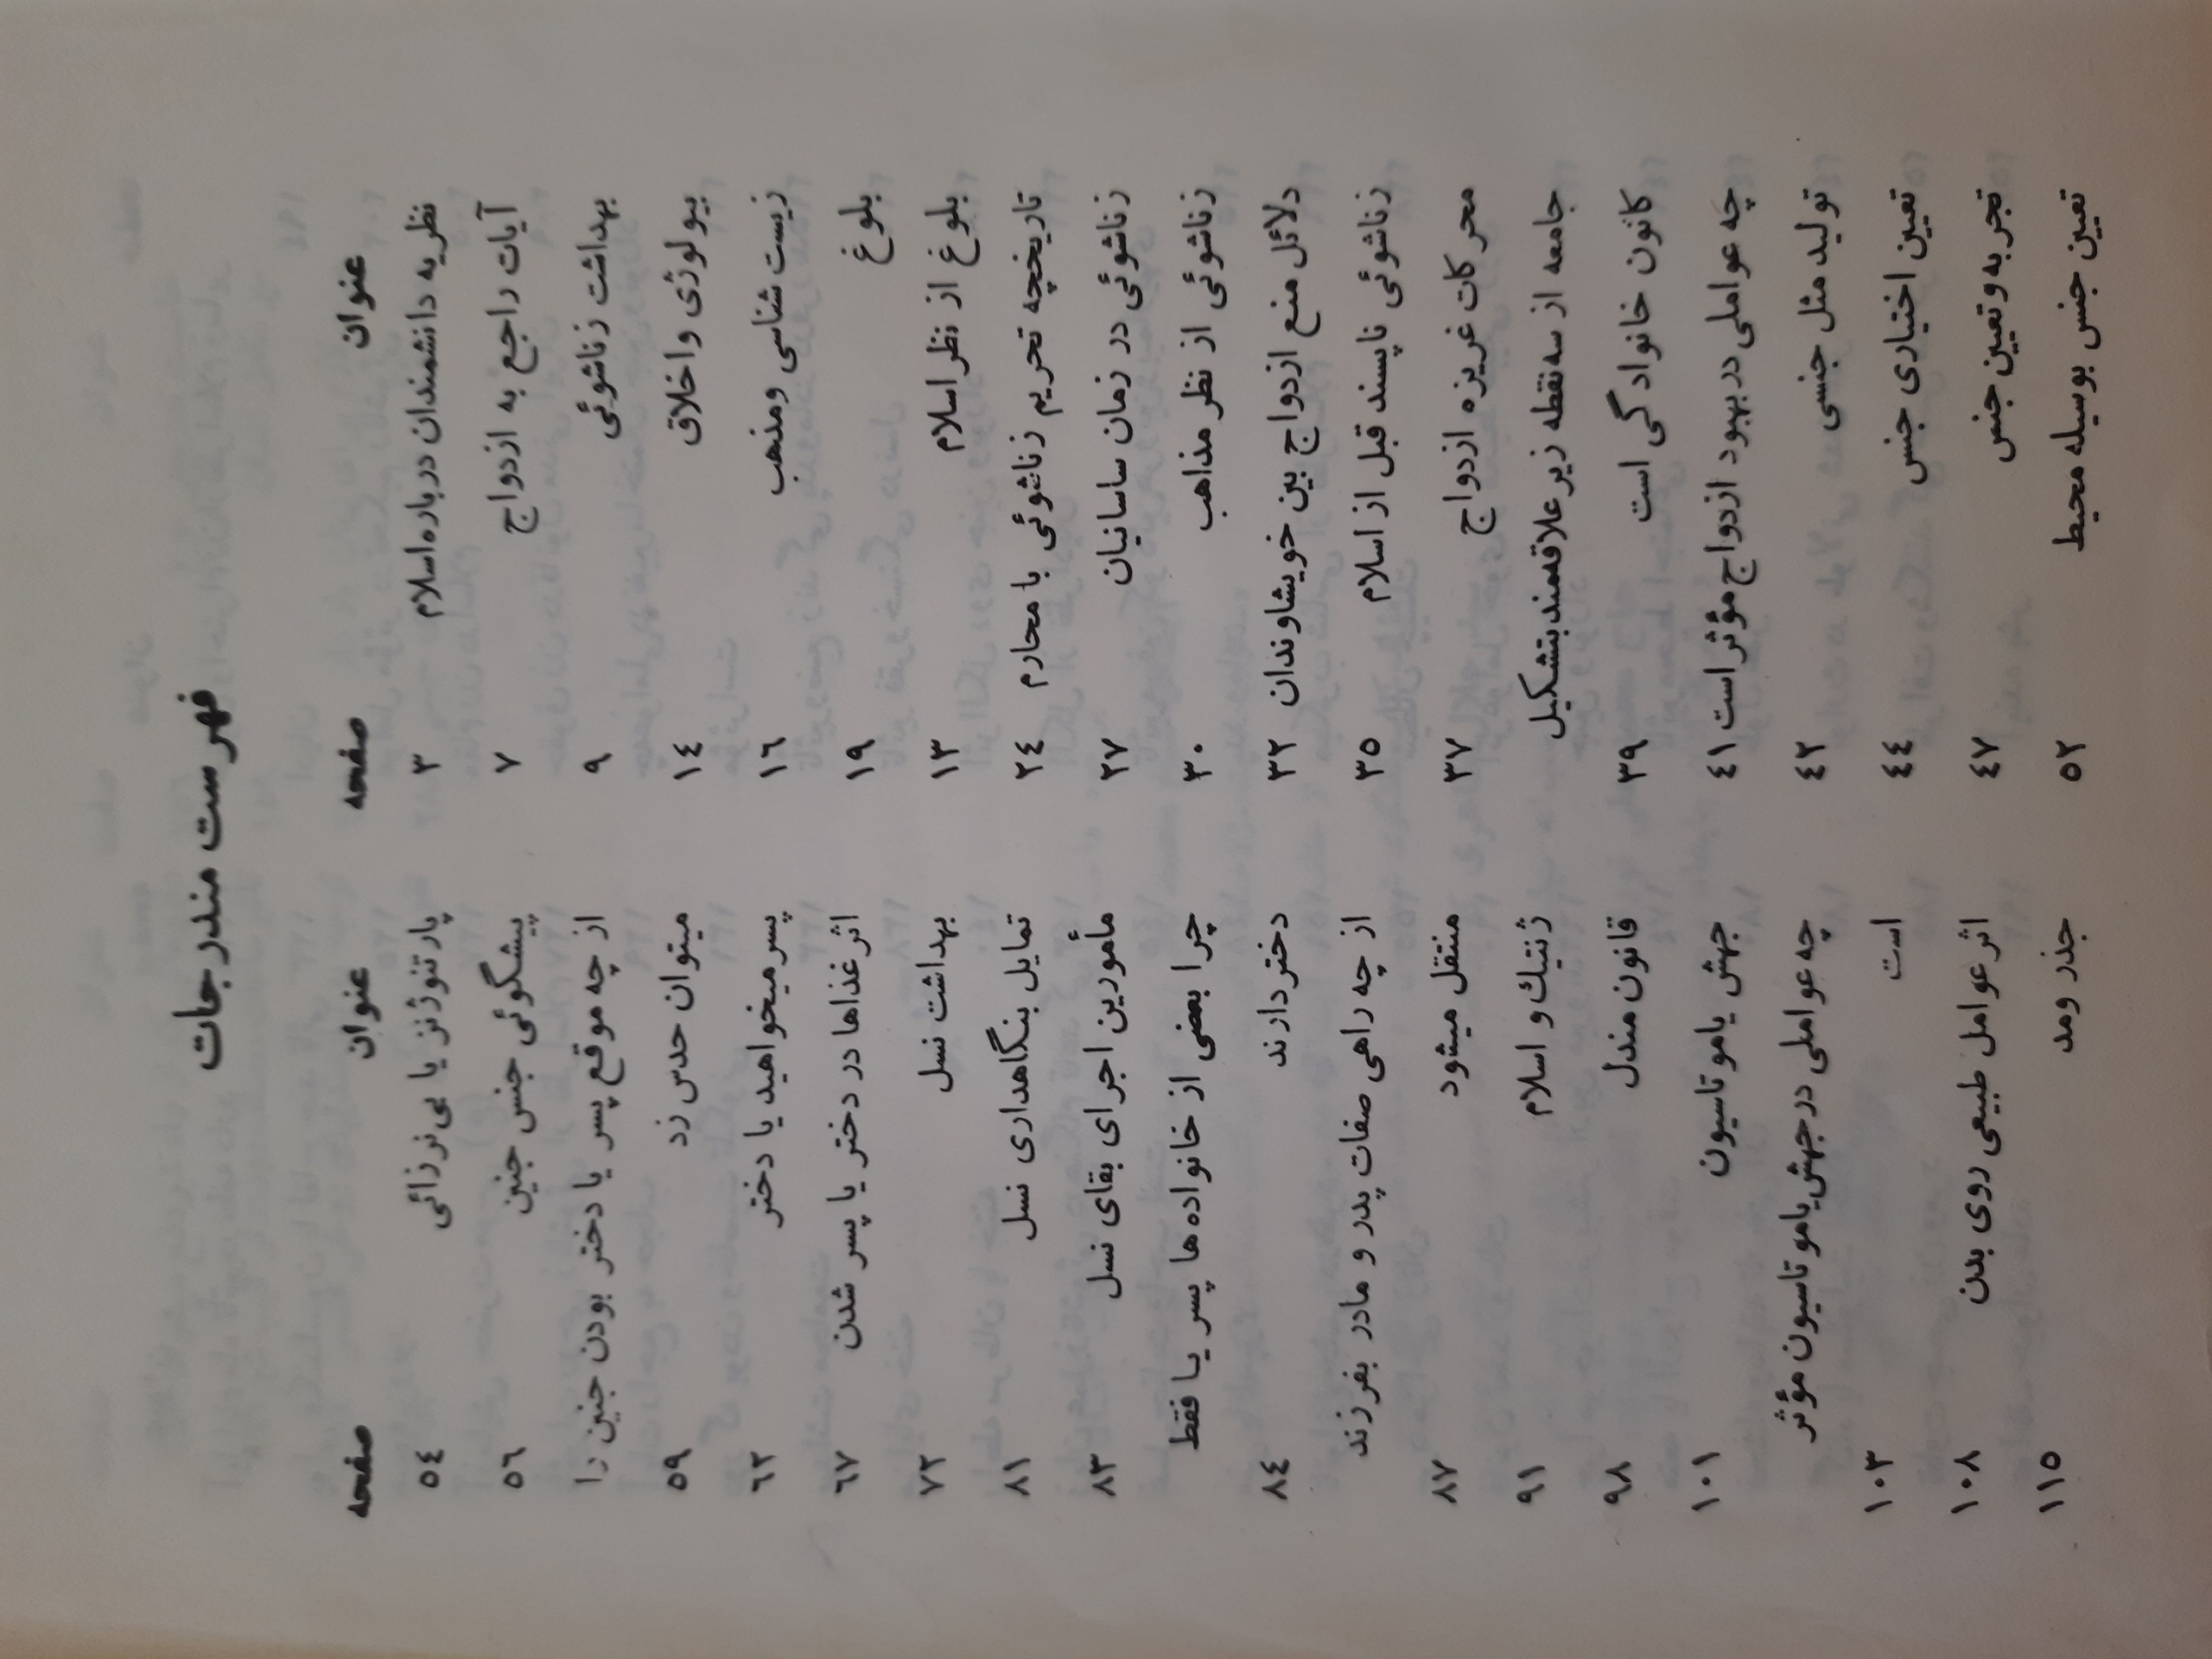 فهرست مندرجات
عنوان صفحه
نظریه دانشمندان درباره اسلام ۳
آیات راجع به ازدواج ۷
بهداشت زناشوئی ۹
بیولوژی و اخلاق ۱٤
زیست شناسی و مذهب ۱٦
بلوغ ۱۹
بلوغ از نظر اسلام ۱۳
تاریخچه تحریم زناشوئی با محارم ۲٤
زناشوئی در زمان ساسانیان ۲۷
زناشوئی از نظر مذاهب ۳۰
دلائل منع ازدواج بین خویشاوندان ۳۲
زناشوئی ناپسند قبل از اسلام ۳۵
محرکات غریزه ازدواج ۳۷
جامعه از سه نقطه زیر علاقمند بتشکیل
کانون خانوادگی است ۳۹
چه عواملی در بهبود ازدواج مؤثر است ٤۱
تولید مثل جنسی ٤۲
تعیین اختیاری جنس ٤٤
تجربه و تعیین جنس ٤۷
تعیین جنس بوسیله محیط ۵۲
عنوان صفحه
پارتنوژنز یا بی نرزائی ۵٤
پیشگوئی جنس جنین ۵٦
از چه موقع پسر یا دختر بودن جنین را
میتوان حدس زد ۵۹
پسر میخواهید یا دختر ٦۲
اثر غذاها در دختر یا پسر شدن ٦۷
بهداشت نسل ۷۲
تمایل بنگاهداری نسل ۸۱
مأمورین اجرای بقای نسل ۸۳
چرا بعضی از خانواده ها پسر یا فقط
دختر دارند ۸٤
از چه راهی صفات پدر و مادر بفرزند
منتقل میشود ۸۷
ژنتیك و اسلام ۹۱
قانون مندل ۹۸
جهش یا موتاسیون ۱۰۱
چه عواملی در جهش یا موتاسیون مؤثر
است ۱۰۳
اثر عوامل طبیعی روی بدن ۱۰۸
جذر و مد ۱۱۵